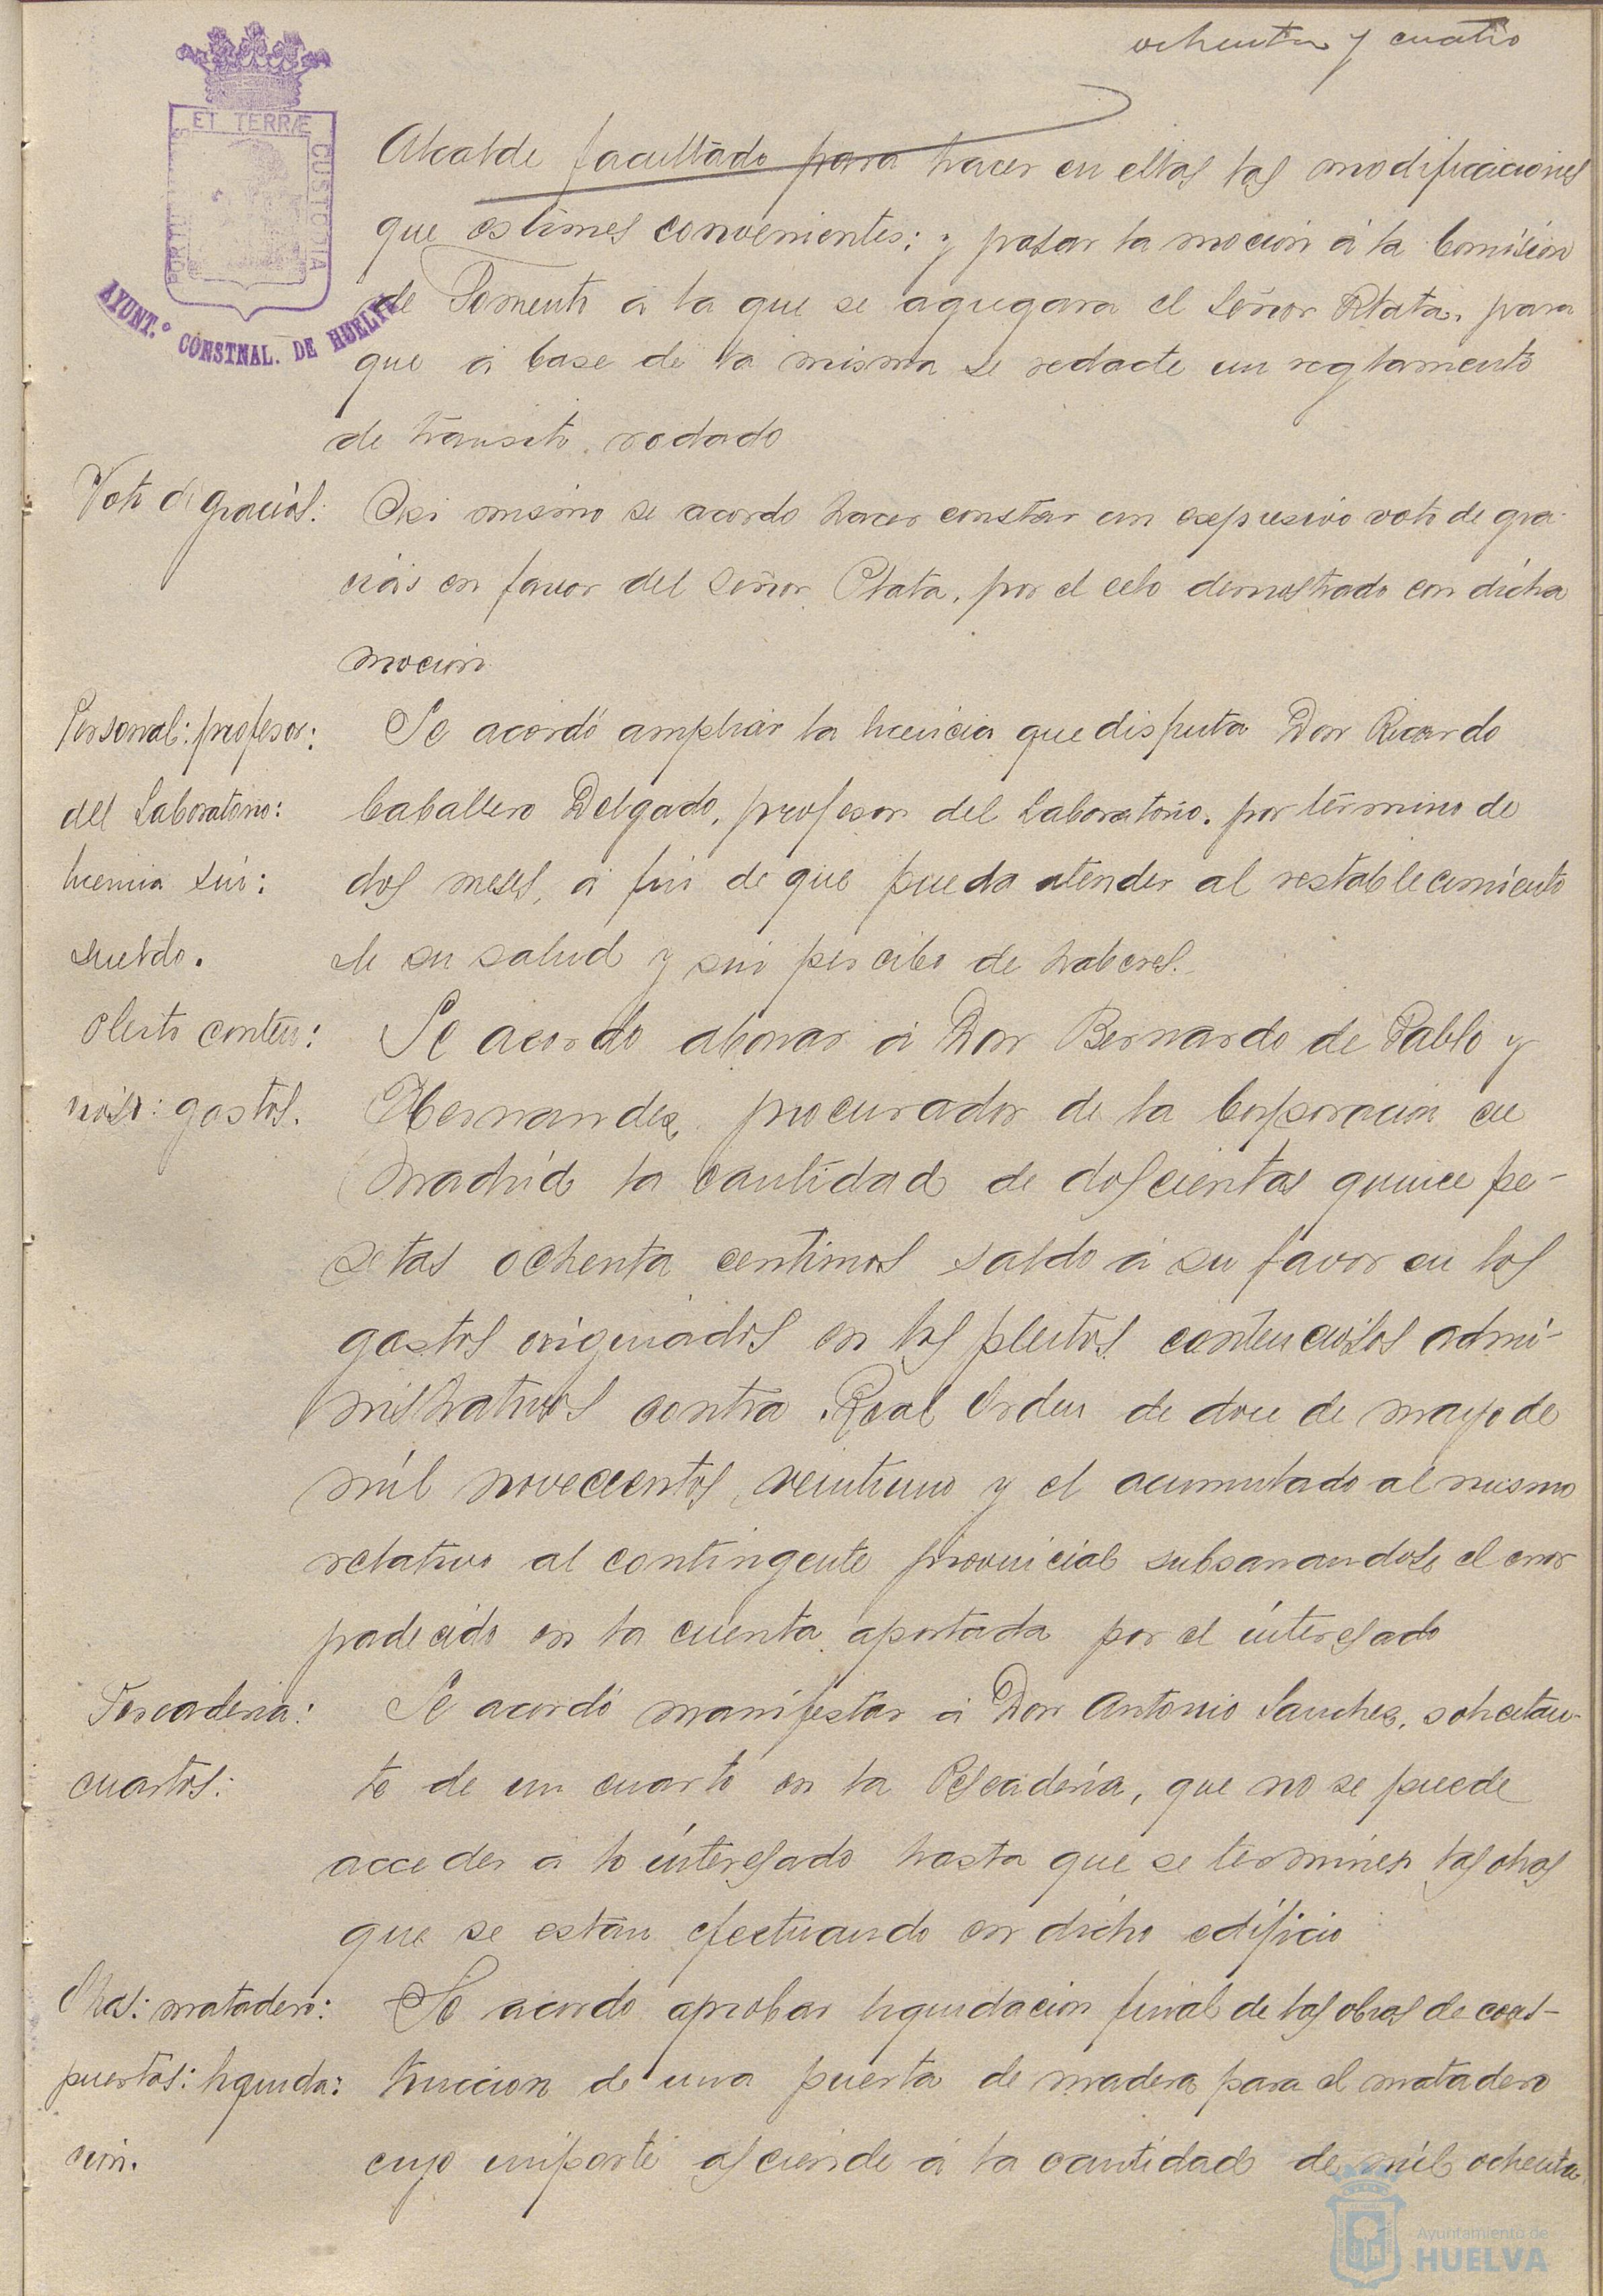 ochenta y cuatro
ET TERRÆ
CUSTODIA
AYUNT.º CONSTNAL. DE HUELVA
Alcalde facultado para hacer en ellas las modificaciones
que estimes convenientes; y pasar la mocion á la Comision
de Fomento a la que se agregara el Señor Plata, para
que á base de la misma se redacte un reglamento
de transito rodado
Voto de gracias: Asi mismo se acordo hacer constar un expresivo voto de gra-
cias en favor del Señor Plata, por el celo demostrado con dicha
mocion
Personal: profesor: Se acordó ampliar la licencia que disfruta Don Ricardo
del Laboratorio: Caballero Delgado, profesor del Laboratorio, por término de
licencia sin: dos meses, á fin de que pueda atender al restablecimiento
sueldo. de su salud y sin percibo de haberes.
Pleito conten: Se acordo abonar á Don Bernardo de Pablo y
cioso: gastos. Hernandez, procurador de la Corporacion en
Madrid la cantidad de doscientas quince pe-
setas ochenta centimos saldo á su favor en los
gastos originados en los pleitos contenciosos admi-
nistrativos contra Real Orden de doce de mayo de
mil novecientos veintiuno y el acumulado al mismo
relativo al contingente provincial subsanandose el error
padecido en la cuenta aportada por el interesado
Pescaderia: Se acordó manifestar á Don Antonio Sanchez, solicitan-
cuartos: te de un cuarto en la Pescadería, que no se puede
acceder a lo interesado hasta que se terminen las obras
que se estan efectuando en dicho edificio
Obras: matadero: Se acordo aprobar liquidacion final de las obras de cons-
puertas: liquida: truccion de una puerta de madera para el matadero
cion. cuyo importe asciende á la cantidad de mil ochenta
Ayuntamiento de
HUELVA